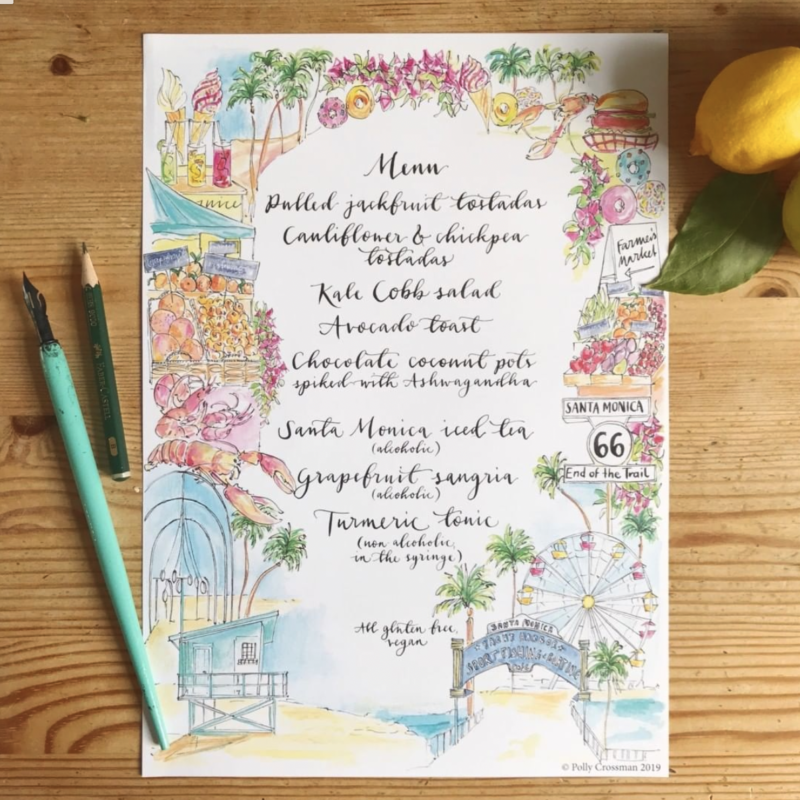 Menu
Pulled jackfruit tostadas
Cauliflower & chickpea
tostadas
Kale Cobb salad
Avocado toast
Chocolate coconut pots
spiked with Ashwagandha
Santa Monica iced tea
(alcoholic)
Grapefruit sangria
(alcoholic)
Turmeric tonic
(non alcoholic,
in the syringe)
All gluten free,
vegan
JUICE
Farmer's
Market
SANTA MONICA
66
End of the Trail
SANTA MONICA
© Polly Crossman 2019